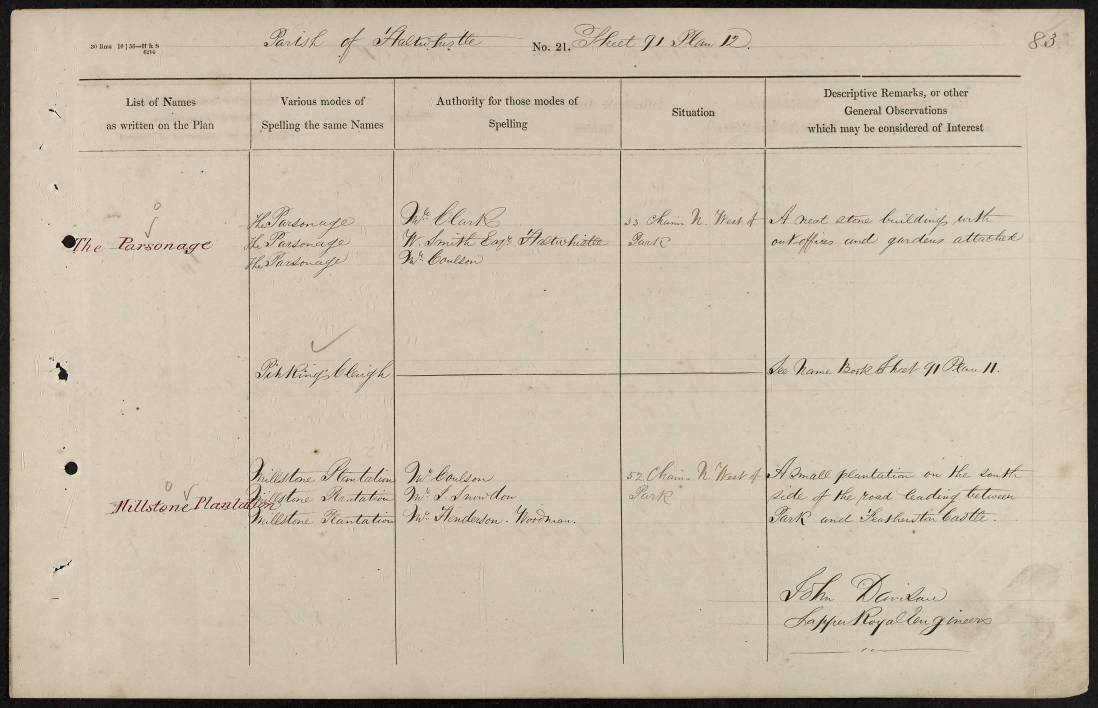 Parish of Haltwhistle No. 21. Sheet 91 Plan 12. 83
List of Names
as written on the Plan
Various modes of
Spelling the same Names
Authority for those modes of
Spelling
Situation
Descriptive Remarks, or other
General Observations
which may be considered of Interest
The Parsonage
The Parsonage
The Parsonage
The Parsonage
Mr. Clark
W. Smith Esqr. Haltwhistle
Mr. Coulson
33 Chains N. West of
Park
A neat stone building, with
out-offices and gardens attached
Cleugh
See Name Book Sheet 91 Plan 11.
Millstone Plantation
Millstone Plantation
Millstone Plantation
Millstone Plantation
Mr. Coulson
Mr. Snowdon
Mr. Henderson. Woodman.
52 Chains N. West of
Park
A small plantation on the south
side of the road leading between
Park and Featherston Castle.
John Davison
Sapper Royal Engineers